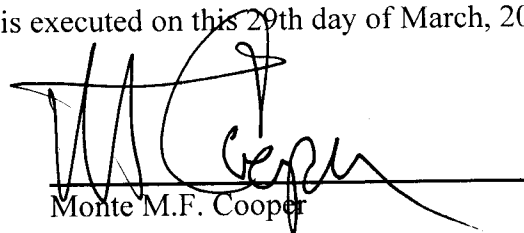 is executed on this 29th day of March, 20
Cooper
Monte M.F. Cooper